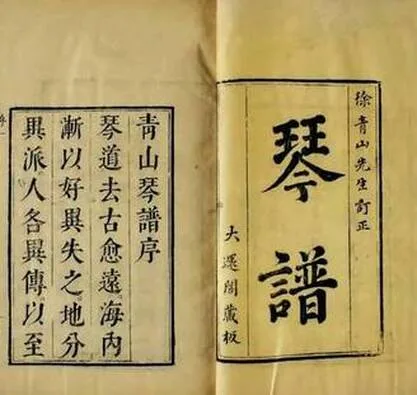 徐青山先生訂正
琴譜
大還閣藏板
青山琴譜序
琴道去古愈遠海内
漸以好異失之地分
異派人各異傳以至